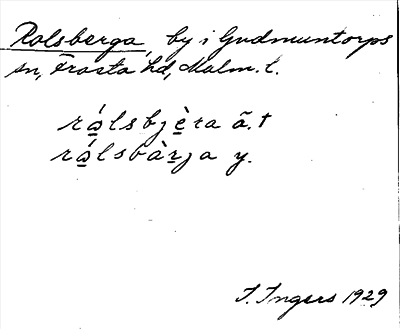 Rolsberga, by i Gudmuntorps
sn, Frosta hd, Malm. l.
rá̱lsbjè̱ra ã. †
rá̱lsbàṟja y.
I. Ingers 1929